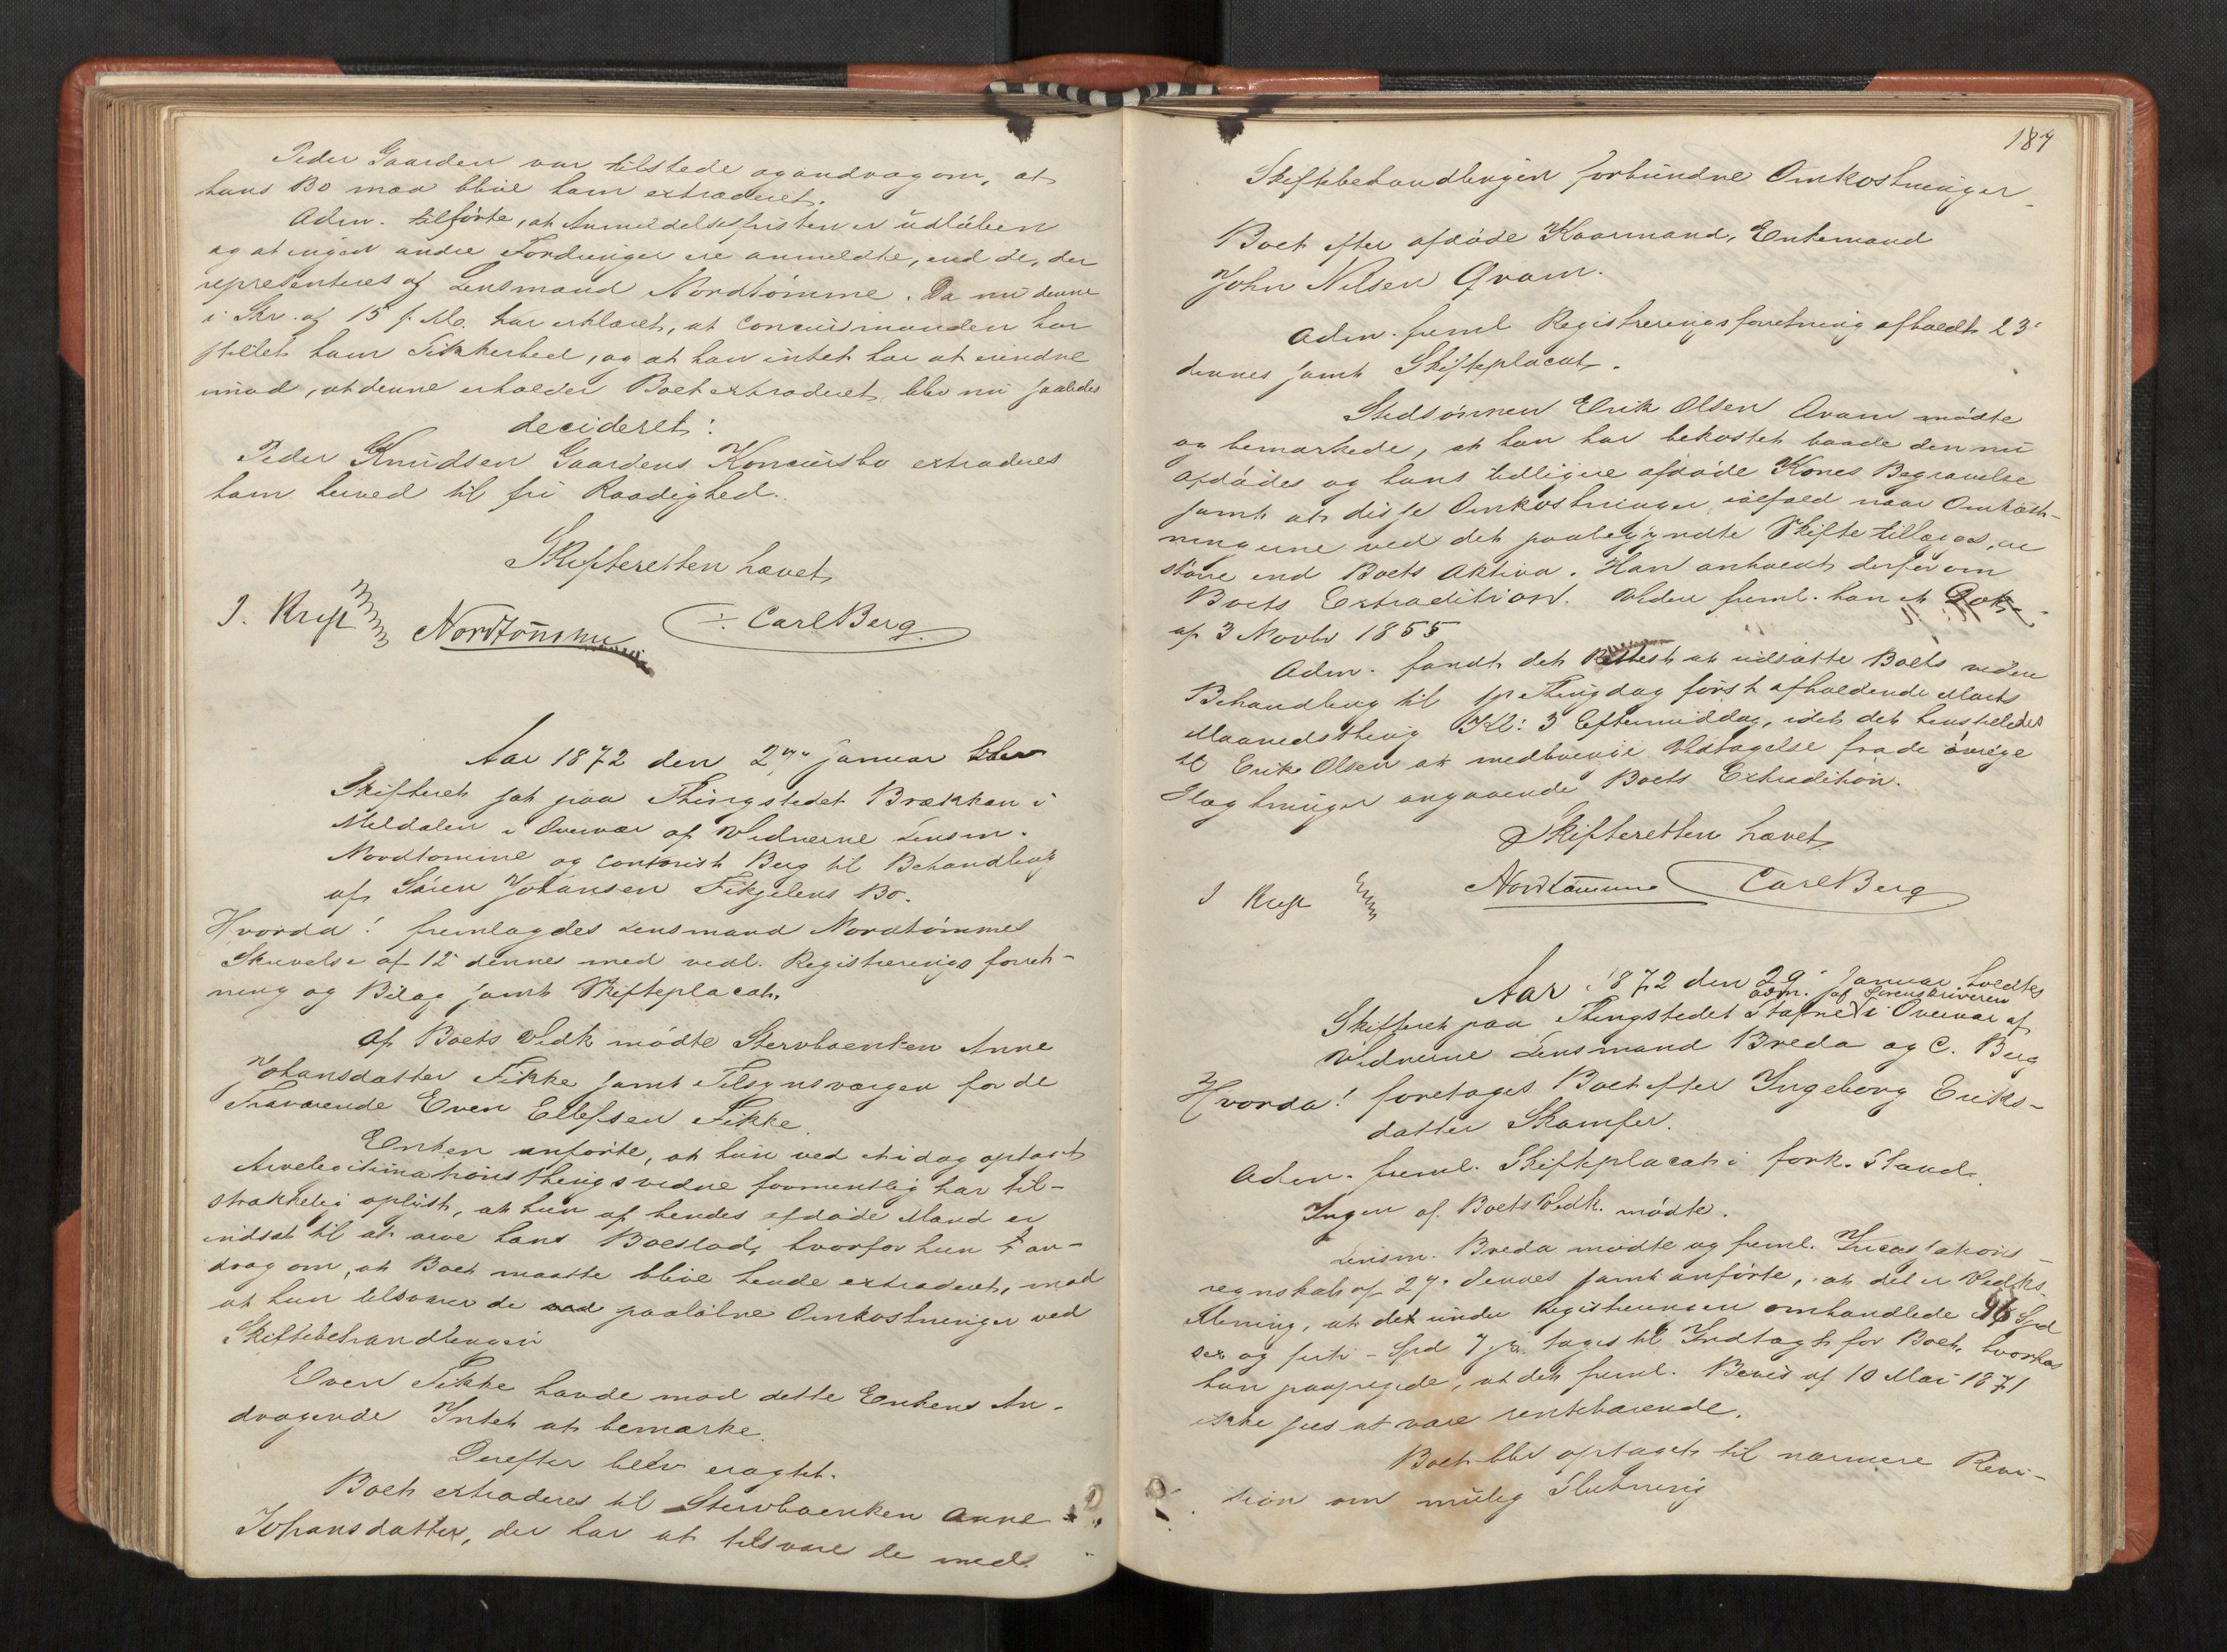 Peder Gaarden var tilstede og androg om, at
hans Bo maa blive ham extraderet.
Adm. tilførte, at Anmeldelsesfristen er udløben
og at ingen andre Fordringer ere anmeldte, end de, der
representeres af Lensmand Nordtømme. Da nu denne
i Skr. af 15 f. M. har erklæret, at Concursmanden har
stillet ham Sikkerhed, og at han intet har at erindre
imod, at denne erholder Boet extraderet, blev nu saaledes
decideret:
Peder Knudsen Gaardens Koncursbo extraderes
ham herved til fri Raadighed.
Skifteretten hævet
Nordtømme Carl Berg
Aar 1872 den 27de Januar blev
Skifteret sat paa Thingstedet Brækken i
Meldalen i Overvær af Vidnerne Lensm.
Nordtømme og Contorist Berg til Behandling
af Sören Johansen Fikgelens Bo.
Hvorda! fremlagdes Lensmand Nordtømmes
Skrivelse af 12 dennes med vedl. Registreringsforret-
ning og Bilag samt Skifteplacat.
Af Boets Vedk. mødte Stervboenken Anne
Johansdatter Fikke samt Tilsynsværgen for de
Fraværende Even Ellefsen Fikke.
Enken anførte, at hun ved et i dag optaget
Arvelegitimationsthingsvidne formentlig har til-
strækkelig oplyst, at hun af hendes afdøde Mand er
indsat til at arve hans Boeslod, hvorfor hun an-
drog om, at Boet maatte blive hende extraderet, mod
at hun tilsvarer de paaløbne Omkostninger ved
Skiftebehandlingen
Even Fikke havde mod dette Enkens An-
dragende Intet at bemærke.
Derefter blev eragtet.
Boet extraderes til Stervboenken Anne
Johansdatter, der har at tilsvare de med
187
Skiftebehandlingen forbundne Omkostninger.
Boet efter afdøde Kaarmand, Enkemand
John Nilsen Qvam.
Adm. freml Registreringsforretning afholdt 23
dennes samt Skifteplacat.
Stedsønnen Erik Olsen Qvam mødte
og bemærkede, at han har bekostet baade den nu
Afdødes og hans tidligere afdøde Kones Begravelse
samt at disse Omkostninger, ialfald naar Omkost-
ningerne ved det paabegyndte Skifte tillægges, ere
større end Boets Aktiva. Han anholdt derfor om
Boets Extradition. Videre freml. han et Dok.
af 3 Novbr 1855
Adm. fandt det Rettest at udsætte Boets videre
Behandling til Thingdag først afholdende Marts
Maanedsthing Kl: 3 Eftermiddag, idet det henstilledes
til Erik Olsen at medbringe Vedtagelse fra de øvrige
Slægtninger angaaende Boets Extradition.
Skifteretten hævet
Nordtømme Carl Berg
Aar 1872 den 29 Januar holdtes
adm. af Sorenskriveren
Skifteret paa Thingstedet Stafne i Overvær af
Vidnerne Lensmand Breda og C. Berg
Hvorda! foretages Boet efter Ingeborg Eriks-
datter Skamfer.
Adm. freml. Skifteplacat i fork. Stand.
Ingen af Boets Vedk. mødte.
Lensm. Breda mødte og freml. Incassations-
regnskab af 27. dennes samt anførte, at det er Vedks.
Mening, at det under Registreringen omhandlede 96 Spd
sex og firti - Spd 7 tages til Indtægt for Boet, hvorhos
han paapegede, at det freml. Bevis af 10 Mai 1871
ikke sees at være rentebærende.
Boet blev optaget til nærmere Revi-
sion om mulig Slutning